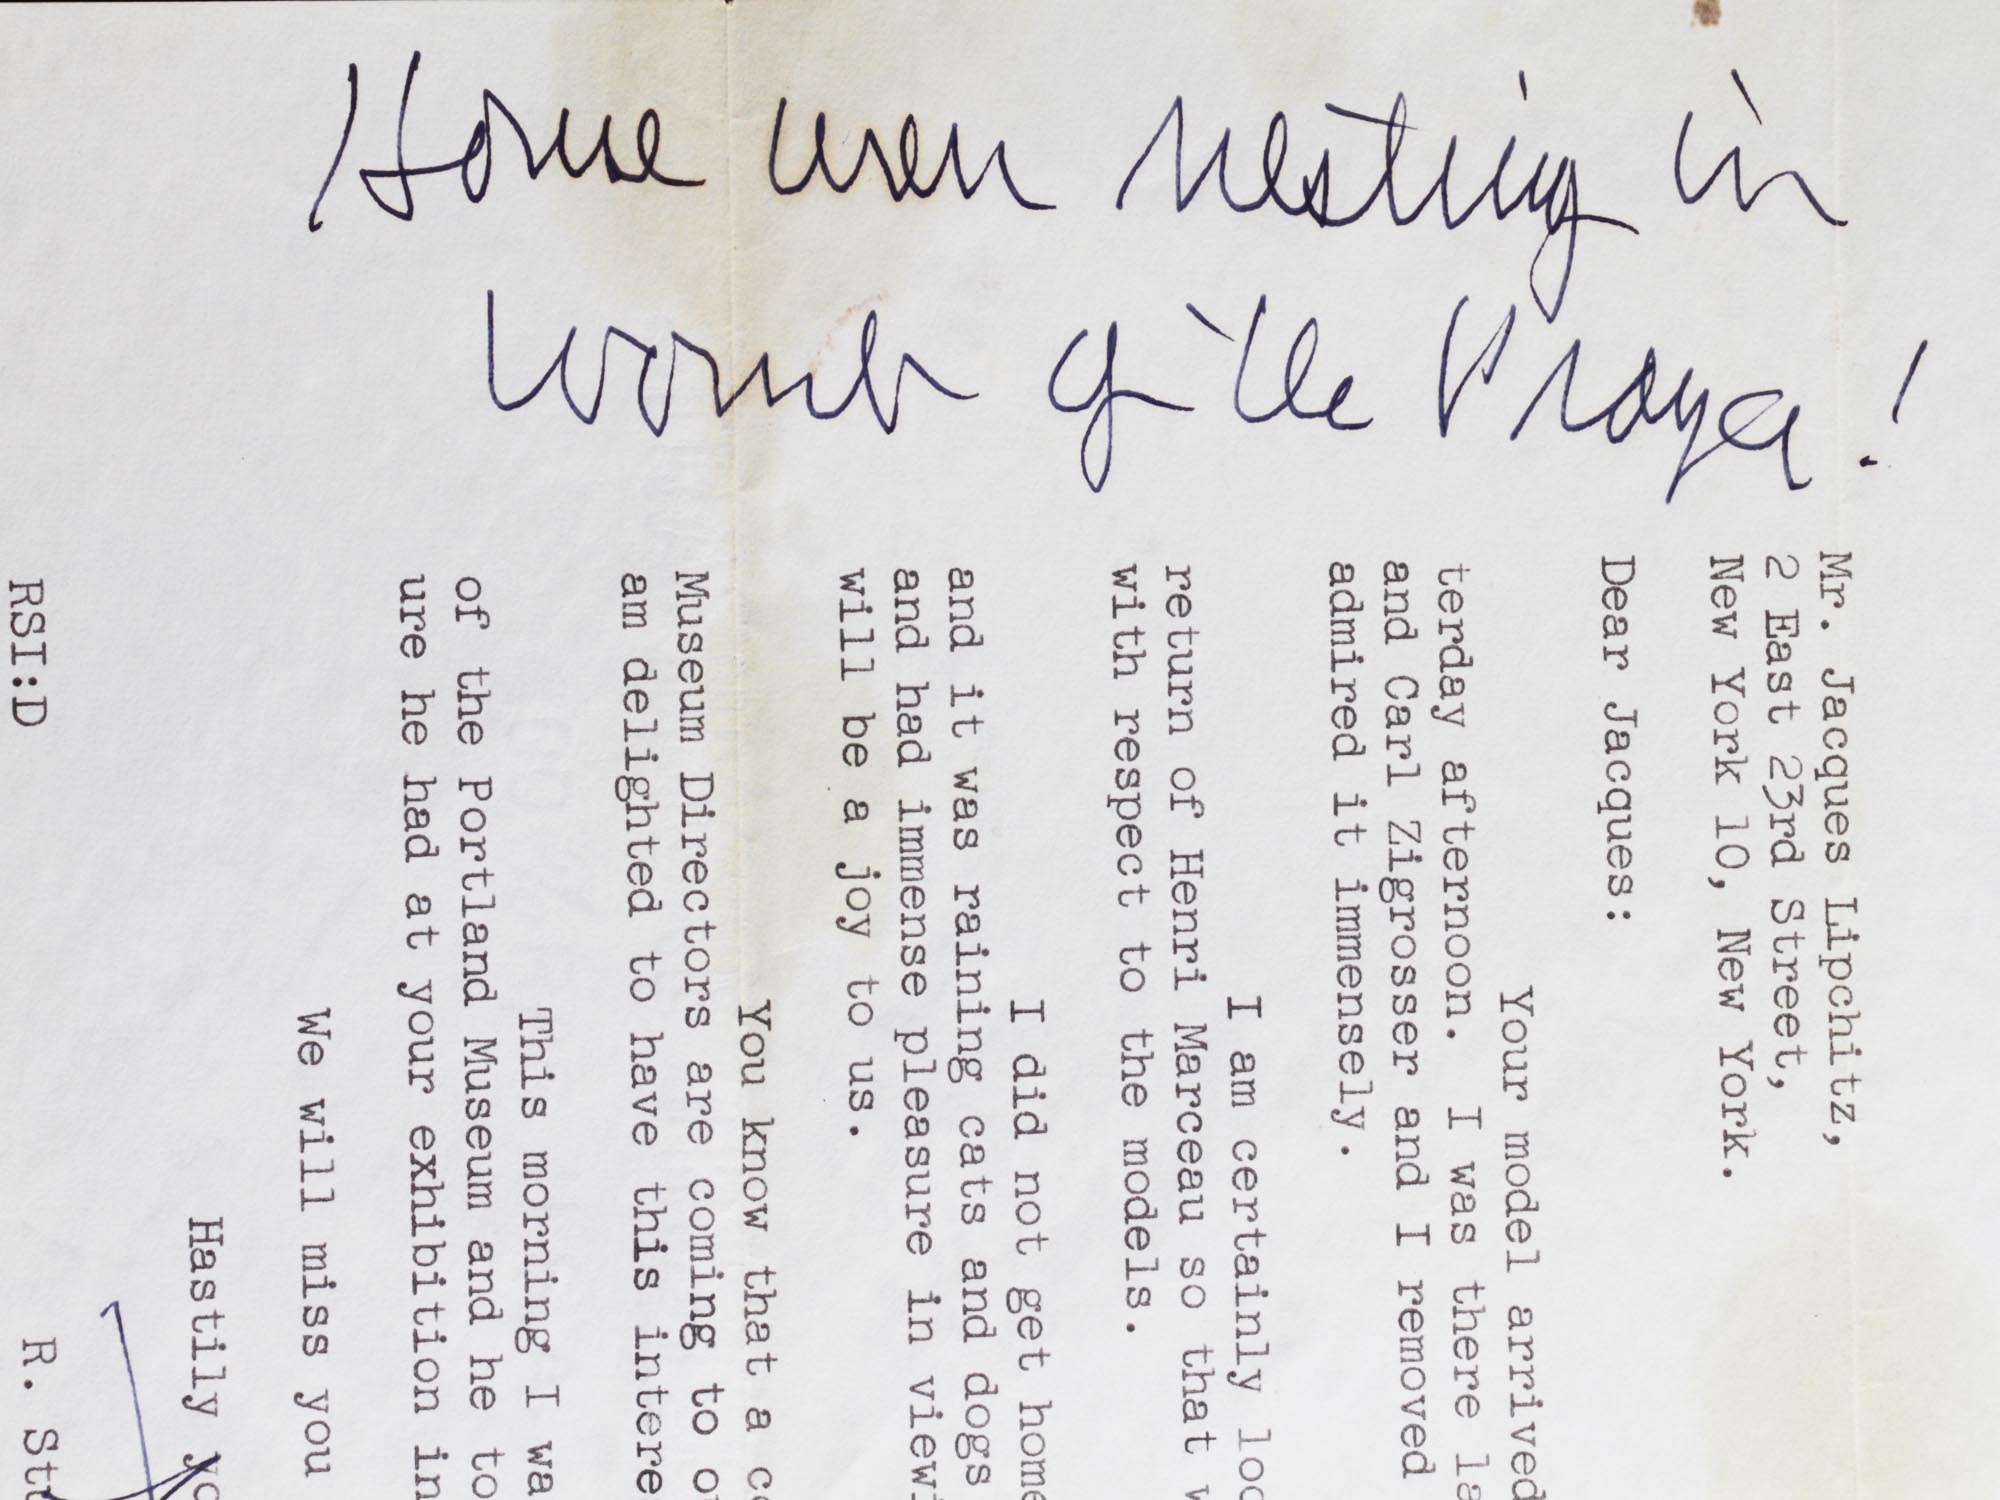 House wren nesting in
womb of the Prayer!
Mr. Jacques Lipchitz,
2 East 23rd Street,
New York 10, New York.
Dear Jacques:
Your model arrived
terday afternoon. I was there la
and Carl Zigrosser and I removed
admired it immensely.
I am certainly loo
return of Henri Marceau so that w
with respect to the models.
I did not get home
and it was raining cats and dogs
and had immense pleasure in viewi
will be a joy to us.
You know that a co
Museum Directors are coming to ou
am delighted to have this intere
This morning I wa
of the Portland Museum and he to
ure he had at your exhibition in
We will miss you
Hastily yo
R. Stu
RSI:D